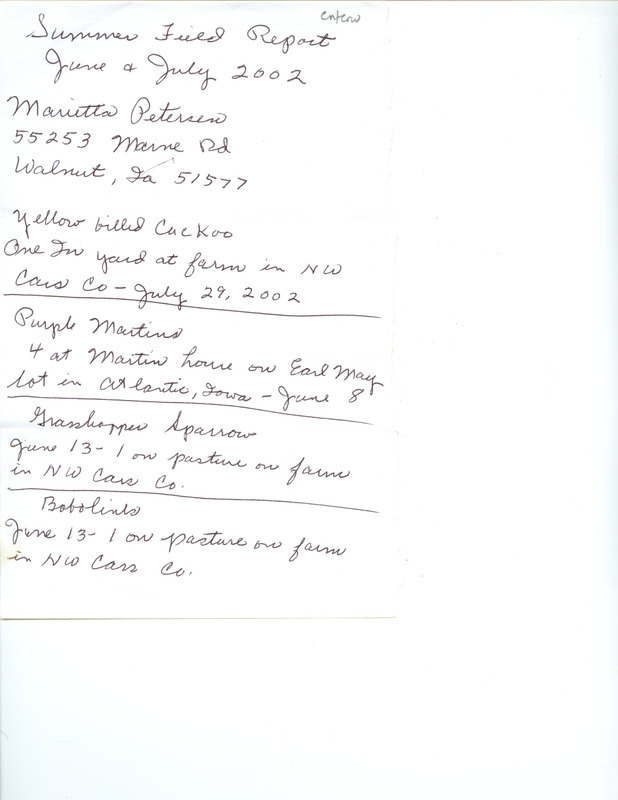 enterd
Summer Field Report
June & July 2002
Marietta Petersen
55253 Marne Rd
Walnut, Ia 51577
Yellow billed Cuckoo
One In yard at farm in NW
Cass Co - July 29, 2002
Purple Martins
4 at Martin house on Earl May
lot in Atlantic, Iowa - June 8
Grasshopper Sparrow
June 13 - 1 on pasture on farm
in NW Cass Co.
Bobolinks
June 13 - 1 on pasture on farm
in NW Cass Co.